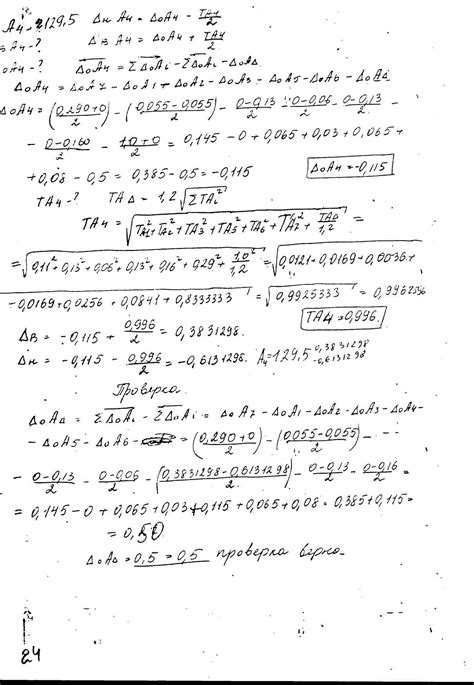 A4 = 129,5 ΔнA4 = ΔoA4 - TA4/2
ΔвA4 - ? ΔвA4 = ΔoA4 + TA4/2
ΔoA4 - ? ΔoA4 = ΣΔoAi - ΣΔoAi - ΔoAΔ
ΔoA4 = ΔoA7 - ΔoA1 - ΔoA2 - ΔoA3 - ΔoA5 - ΔoA6 - ΔoAΔ
ΔoA4 = (0,290+0)/2 - (0,055-0,055)/2 - 0-0,13/2 - 0-0,06/2 - 0-0,13/2 -
- 0-0,160/2 - 1,0+0/2 = 0,145 - 0 + 0,065 + 0,03 + 0,065 +
+ 0,08 - 0,5 = 0,385 - 0,5 = -0,115 ΔoA4 = -0,115
TA4 - ? TAΔ = 1,2 √ΣTAi²
TA4 = √TA1² + TA2² + TA3² + TA5² + TA6² + TA7² + TAΔ/1,2 =
= √0,11² + 0,13² + 0,06² + 0,13² + 0,16² + 0,29² + 1,0²/1,2 = √0,0121 + 0,0169 + 0,0036 +
+ 0,0169 + 0,0256 + 0,0841 + 0,8333333 = √0,9925333 = 0,9962536
TA4 = 0,996
Δв = -0,115 + 0,996/2 = 0,3831298
Δн = -0,115 - 0,996/2 = -0,6131298. A4 = 129,5 0,3831298 -0,6131298
Проверка
ΔoAΔ = ΣΔoAi - ΣΔoAi = ΔoA7 - ΔoA1 - ΔoA2 - ΔoA3 - ΔoA4 -
- ΔoA5 - ΔoA6 = (0,290+0)/2 - (0,055-0,055)/2 -
- 0-0,13/2 - 0-0,06/2 - (0,3831298-0,6131298)/2 - 0-0,13/2 - 0-0,16/2 =
= 0,145 - 0 + 0,065 + 0,03 + 0,115 + 0,065 + 0,08 = 0,385 + 0,115 =
= 0,50
ΔoAΔ = 0,5 = 0,5 проверка верна.
24